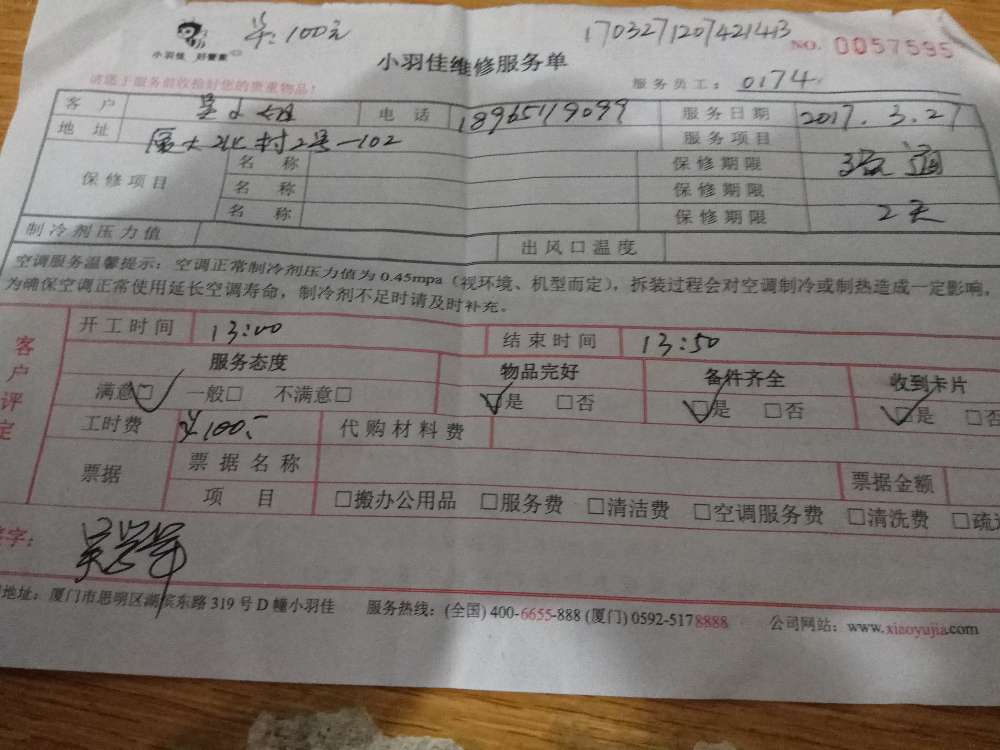 100元
170327120742143
小羽佳 好管家
小羽佳维修服务单
NO. 0057595
请送上服务前收拾好您的贵重物品!
服务员工: 0174
客 户 吴小姐 电 话 18965119099 服务日期 2017.3.27
地 址 厦大北村2号-102 服务项目
保修项目 名 称 保修期限 疏通
名 称 保修期限
名 称 保修期限 2天
制冷剂压力值 出风口温度
空调服务温馨提示: 空调正常制冷剂压力值为 0.45mpa (视环境、机型而定), 拆装过程会对空调制冷或制热造成一定影响,
为确保空调正常使用延长空调寿命, 制冷剂不足时请及时补充。
客户评定
开工时间 13:00 结束时间 13:50
服务态度 物品完好 备件齐全 收到卡片
满意□ 一般□ 不满意□ □是 □否 □是 □否 □是 □否
工时费 ¥100.- 代购材料费
票据 票据名称 票据金额
项 目 □搬办公用品 □服务费 □清洁费 □空调服务费 □清洗费 □疏
字:
地址: 厦门市思明区湖滨东路 319 号 D 幢小羽佳 服务热线: (全国) 400-6655-888 (厦门) 0592-5178888 公司网站: www.xiaoyujia.com